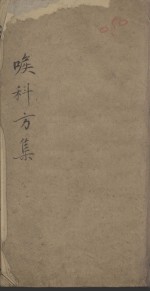 喉科方集